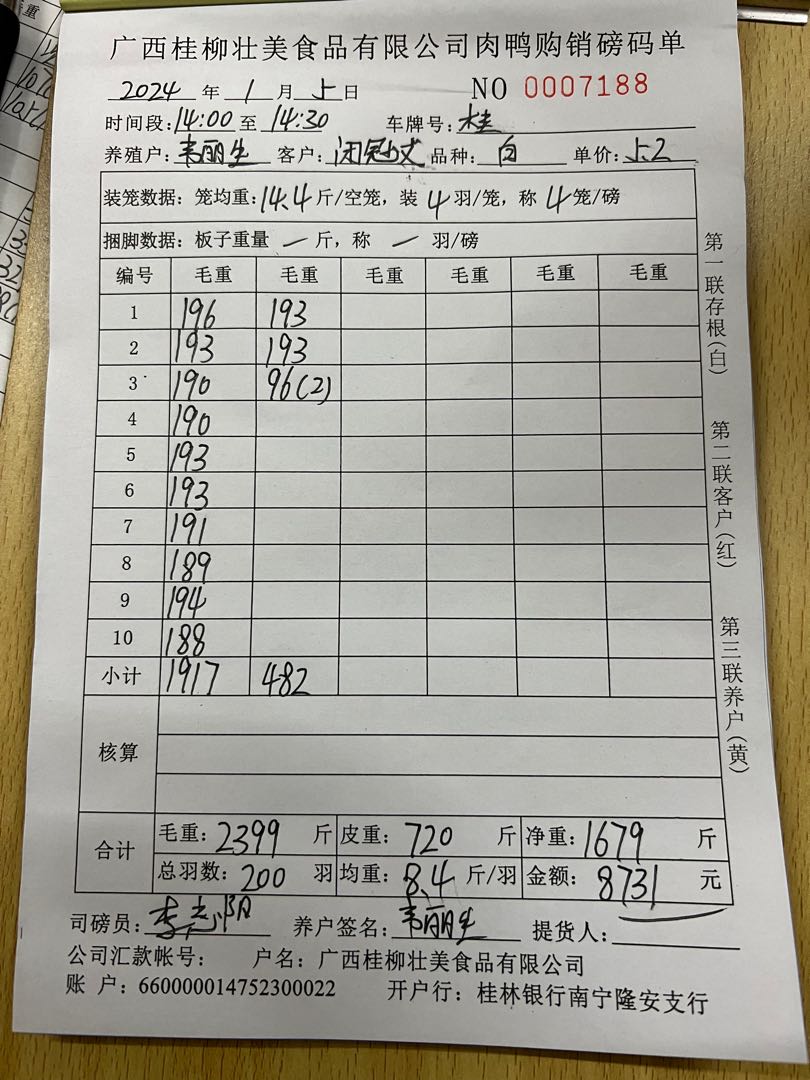 广西桂柳壮美食品有限公司肉鸭购销磅码单
2024 年 1 月 5 日 NO 0007188
时间段：14:00 至 14:30 车牌号：桂
养殖户：韦丽生 客户： 品种：白 单价：5.2
装笼数据：笼均重：14.4 斤/空笼，装 4 羽/笼，称 4 笼/磅
捆脚数据：板子重量 — 斤，称 — 羽/磅
编号 毛重 毛重 毛重 毛重 毛重 毛重
1 196 193
2 193 193
3 190 96(2)
4 190
5 193
6 193
7 191
8 189
9 194
10 188
小计 1917 482
核算
合计 毛重：2399 斤 皮重：720 斤 净重：1679 斤
总羽数：200 羽 均重：8.4 斤/羽 金额：8731 元
司磅员：李志阳 养户签名：韦丽生 提货人：
公司汇款帐号： 户名：广西桂柳壮美食品有限公司
账 户：660000014752300022 开户行：桂林银行南宁隆安支行
第一联存根（白）
第二联客户（红）
第三联养户（黄）